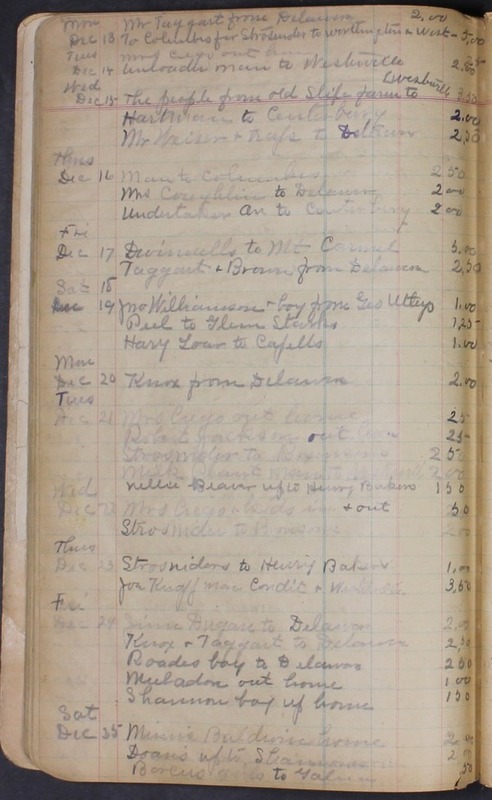 Mon Mr Taggart from Delaware 2.00
Dec 13 To Columbus for Strosnider to Worthington & West - 5.00
Tues Mrs Crego out home 25
Dec 14 man to Westerville 2.50
Wed Westerville
Dec 15 The people from old Slife farm to 3.50
Hartman to Canterbury 2.00
Mr Weiser & to Delaware 2,50
Thus
Dec 16 Man to Columbus 2 50
Mrs Coughlin to Delaware 2 00
Undertaker to Canterbury 2 00
Fri
Dec 17 Dwinnells to Mt Carmel 5.00
Taggart & Brown from Delaware 2,50
Sat 18
Dec 19 Jno Williamson & boy from Geo Utleys 1.00
Peel to Glenn Starks 1,25
Hary Loar to Capells 1.00
Mon
Dec 20 Knox from Delaware 2.00
Tues
Dec 21 Mrs Crego out home 25
Robert Jackson out 25
Strosnider to 2 50
2 00
Wed Nellie Beaver up to Henry Bakers 1 50
Dec 22 Mrs Crego & kids in & out 50
Strosnider to 2 00
Thus
Dec 23 Strosniders to Henry Bakers 1.00
Joe man Condit & Westerville 3,50
Fri
Dec 24 Dugan to Delaware 2.00
Knox & Taggart to Delaware 2,50
Roades boy to Delaware 2 00
Muladon out home 1 00
Shannon boy up home 1 50
Sat
Dec 25 Minnie Baldwin home 2 00
Doans up to
to Galena 50